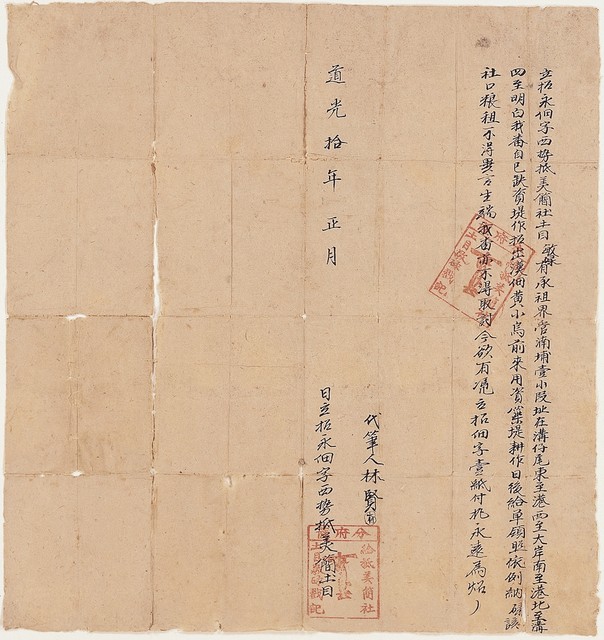 立招永佃字西势抵美簡社土目敏妹有承祖界管湳埔壹小段址在溝仔尾東至港西至大岸南至港北至溝
四至明白我番自己缺資堤作招出漢佃黃小烏前來用資築堤耕作日後給单領照依例納
社口粮租不得異言生端我番亦不得取討今欲有凴立招佃字壹紙付执永遠為炤
代筆人林賢
道光拾年正月
日立招永佃字西势抵美簡土目
分府
給抵美簡社
土目
戳記